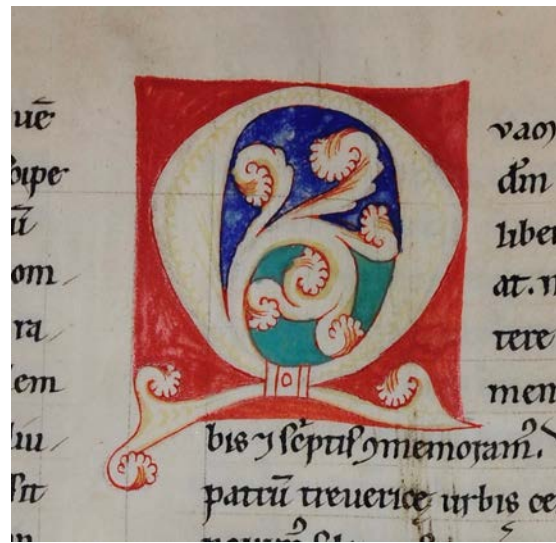 uē
ū
om
ra
em
liu
sit
Q
vaɱ
dīm
liber
at. n
tere
men
bis ⁊ sc̄ptis ꝯmemoramꝰ.
patrū treuerice urbis ce